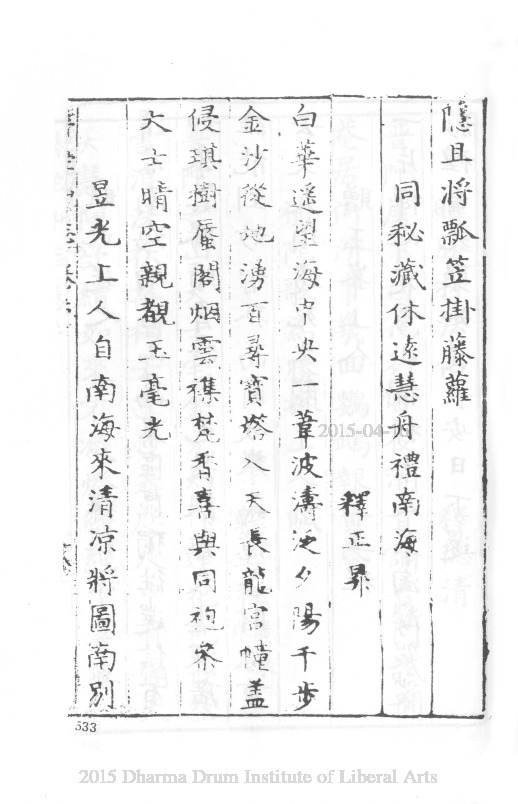 隱且將瓢笠掛藤蘿
同秘藏休遠慧舟禮南海
釋正
白華遥望海中央一葦波濤泛夕陽千步
金沙從地湧百尋寳塔入天長龍宮幢盖
侵琪樹蜃閣烟雲襍梵香喜與同袍参
大士晴空親覩玉毫光
昱光上人自南海來清凉將圖南別
533
2015-04-
2015 Dharma Drum Institute of Liberal Arts